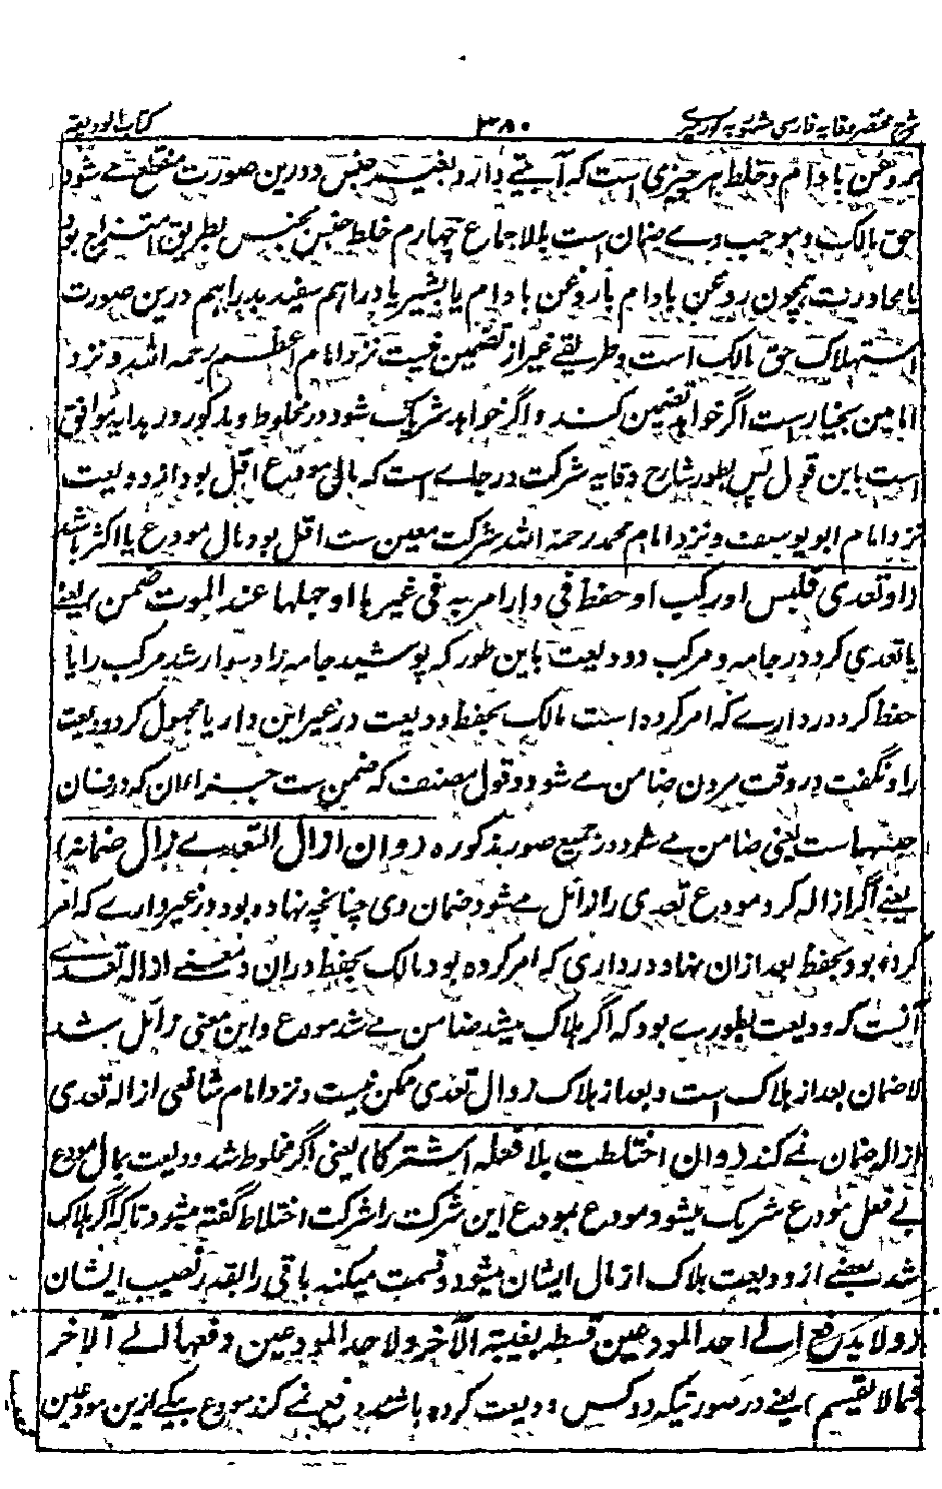 شرح مختصر وقایه فارسی مشهور به کور میری ۳۸۰ کتاب الودیعة
بروغن بادام و خلط هر چیزی است که آمیختی دارد بغیر جنس و درین صورت منقطع می شود
حق مالک و موجب وی ضمان است بالاجماع چهارم خلط جنس بجنس بطریق امتزاج بود
یا مجاورت همچون روغن بادام باروغن بادام یا بشیر یا دراهم سفید بدراهم درین صورت
استهلاک حق مالک است و طریقی غیر از تضمین نیست نزد امام اعظم رحمه الله و نزد
امامین بخیارست اگر خواهد تضمین کند و اگر خواهد شریک شود در مخلوط و مذکور در هدایه موافق
است باین قول پس بطور شارح وقایه شرکت در جای است که مالی مودع اقل بود از ودیعت
نزد امام ابو یوسف و نزد امام محمد رحمه الله شرکت معین ست اقل بود مال مودع یا اکثر باشد
(او تعدی فلبس او رکب او حفظ فی دار امر به فی غیرها او جهلها عند الموت ضمن) یعنی
یا تعدی کرد در جامه و مرکب دو ودیعت باین طور که پوشید جامه را و سوار شد مرکب را یا
حفظ کرد در داری که امر کرده است مالک بحفظ ودیعت در غیر این دار یا مجهول کرد ودیعت
را و نگفت در وقت مردن ضامن می شود و قول مصنف که ضمن ست جزاء ان که در فان
حبسها ست یعنی ضامن می شود در جمیع صور مذکوره (و ان ازال التعدی زال ضمانه)
یعنی اگر ازاله کرد مودع تعدی را زائل می شود ضمان وی چنانچه نهاده بود در غیر داری که امر
کرده بود بحفظ بعد ازان نهاد در داری که امر کرده بود مالک بحفظ دران و معنی ازاله تعدی
آنست که ودیعت بطوری بود که اگر هلاک میشد ضامن می شد مودع و این معنی زائل شد
لا ضمان بعد از هلاک است و بعد از هلاک زوال تعدی ممکن نیست و نزد امام شافعی ازاله تعدی
ازاله ضمان نمی کند (و ان اختلطت بلا فعله اشترکا) یعنی اگر مخلوط شد ودیعت بمال مودع
بی فعل مودع شریک میشود مودع بمودع این شرکت را شرکت اختلاط گفته میشود تا که اگر هلاک
شد بعضی از ودیعت هلاک از مال ایشان میشود و قسمت میکنند باقی را بقدر نصیب ایشان
(و لا یدفع الی احد المودعین قسطه بغیبة الآخر و لاحد المودعین دفعها الی الآخر
فیما لا یقسم) یعنی در صورتیکه دو کس ودیعت کرده باشند دفع نمی کند مودع بیکی ازین مودعین